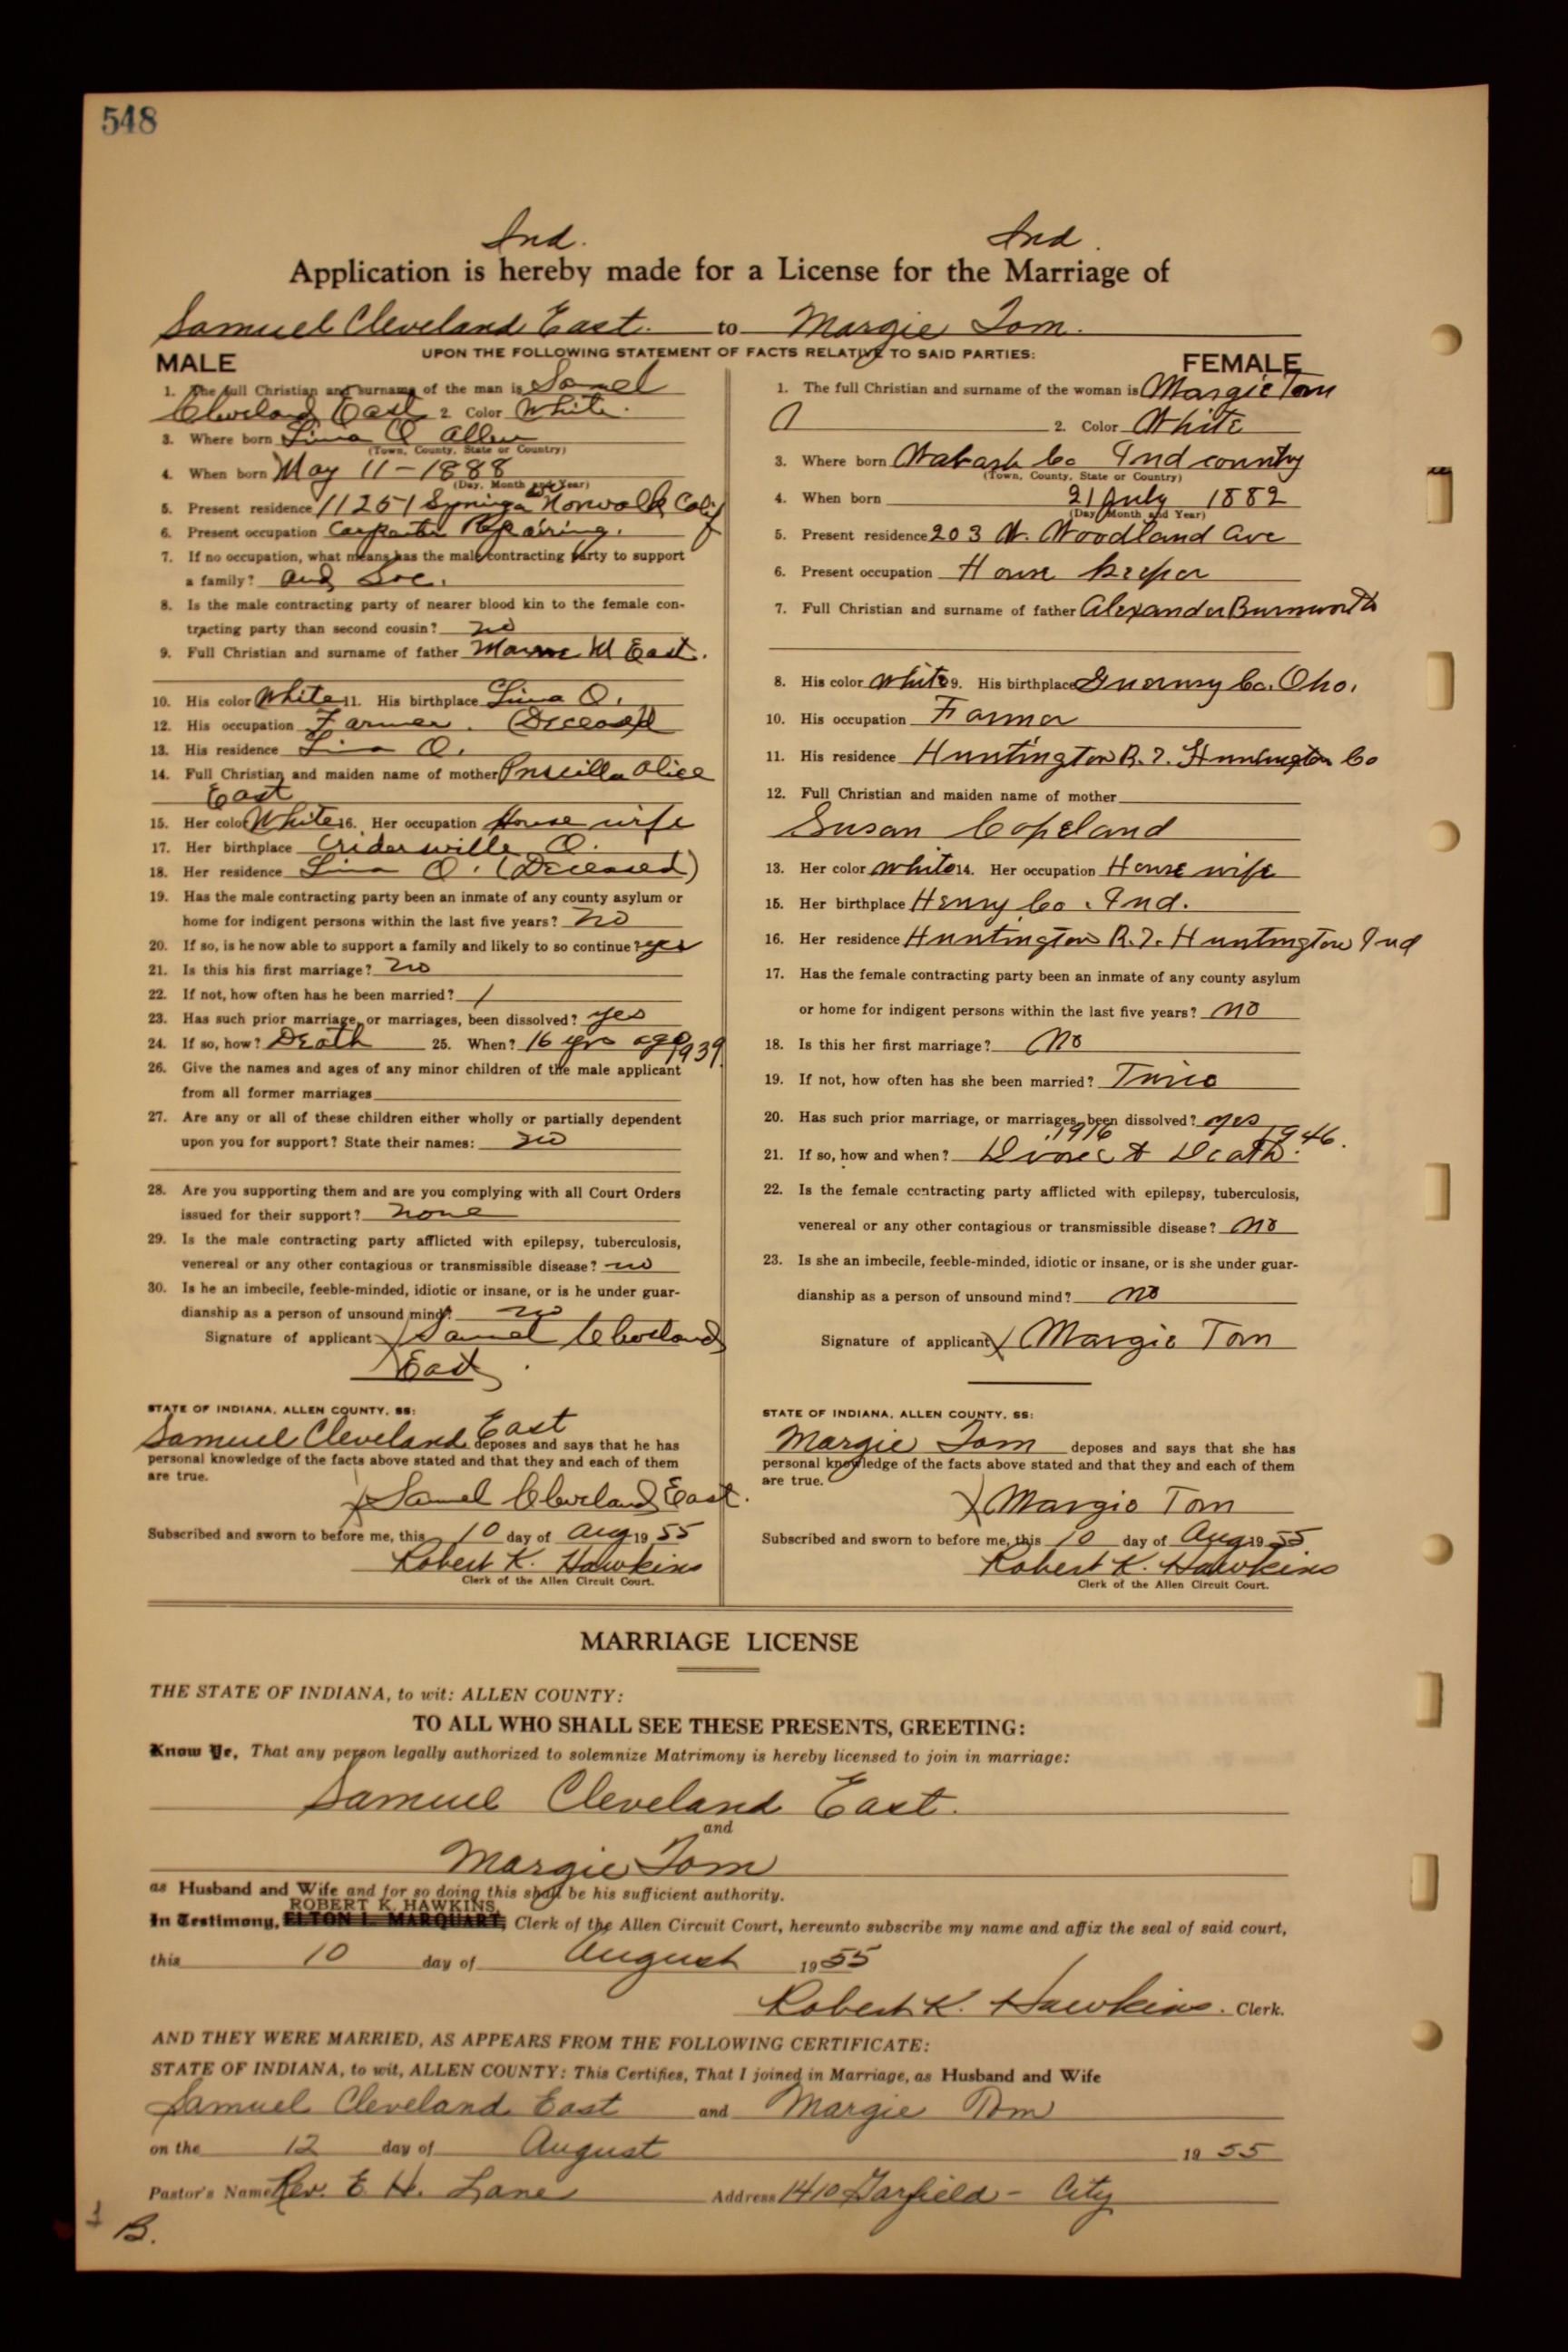 548
Ind. Ind.
Application is hereby made for a License for the Marriage of
Samuel Cleveland East. to Margie Tom.
UPON THE FOLLOWING STATEMENT OF FACTS RELATIVE TO SAID PARTIES:
MALE
1. The full Christian and surname of the man is Samel
Cleveland East 2. Color White.
3. Where born Lima O Allen
(Town, County, State or Country)
4. When born May 11-1888
(Day, Month and Year)
5. Present residence 11251 Norwalk Calif
6. Present occupation Carpenter Repairing.
7. If no occupation, what means has the male contracting party to support
a family? and Soc.
8. Is the male contracting party of nearer blood kin to the female con-
tracting party than second cousin? no
9. Full Christian and surname of father M East.
10. His color White 11. His birthplace Lima O.
12. His occupation Farmer. (Deceased
13. His residence Lima O.
14. Full Christian and maiden name of mother Priscilla Alice
East
15. Her color White 16. Her occupation House wife
17. Her birthplace Cridersville O.
18. Her residence Lima O. (Deceased)
19. Has the male contracting party been an inmate of any county asylum or
home for indigent persons within the last five years? no
20. If so, is he now able to support a family and likely to so continue? yes
21. Is this his first marriage? no
22. If not, how often has he been married? 1
23. Has such prior marriage, or marriages, been dissolved? yes
24. If so, how? Death 25. When? 16 yrs ago 1939.
26. Give the names and ages of any minor children of the male applicant
from all former marriages
27. Are any or all of these children either wholly or partially dependent
upon you for support? State their names: no
28. Are you supporting them and are you complying with all Court Orders
issued for their support? none
29. Is the male contracting party afflicted with epilepsy, tuberculosis,
venereal or any other contagious or transmissible disease? no
30. Is he an imbecile, feeble-minded, idiotic or insane, or is he under guar-
dianship as a person of unsound mind? no
Signature of applicant X Samel Cleveland
East
STATE OF INDIANA, ALLEN COUNTY, SS:
Samuel Cleveland East deposes and says that he has
personal knowledge of the facts above stated and that they and each of them
are true.
X Samel Cleveland East.
Subscribed and sworn to before me, this 10 day of Aug 19 55
Robert K. Hawkins
Clerk of the Allen Circuit Court.
FEMALE
1. The full Christian and surname of the woman is Margie Tom
2. Color White
3. Where born Wabash Co Ind county
(Town, County, State or Country)
4. When born 21 July 1882
(Day, Month and Year)
5. Present residence 203 W. Woodland Ave
6. Present occupation House keeper
7. Full Christian and surname of father Alexander Burnworth
8. His color White 9. His birthplace Guernsy Co. Oho.
10. His occupation Farmer
11. His residence Huntington R.7. Huntington Co
12. Full Christian and maiden name of mother
Susan Copeland
13. Her color White 14. Her occupation House wife
15. Her birthplace Henry Co. Ind.
16. Her residence Huntington R.7. Huntington Ind
17. Has the female contracting party been an inmate of any county asylum
or home for indigent persons within the last five years? no
18. Is this her first marriage? No
19. If not, how often has she been married? Twice
20. Has such prior marriage, or marriages, been dissolved? yes
1916 1946.
21. If so, how and when? Divorce & Death.
22. Is the female contracting party afflicted with epilepsy, tuberculosis,
venereal or any other contagious or transmissible disease? no
23. Is she an imbecile, feeble-minded, idiotic or insane, or is she under guar-
dianship as a person of unsound mind? no
Signature of applicant X Margie Tom
STATE OF INDIANA, ALLEN COUNTY, SS:
Margie Tom deposes and says that she has
personal knowledge of the facts above stated and that they and each of them
are true.
X Margie Tom
Subscribed and sworn to before me, this 10 day of Aug 19 55
Robert K. Hawkins
Clerk of the Allen Circuit Court.
MARRIAGE LICENSE
THE STATE OF INDIANA, to wit: ALLEN COUNTY:
TO ALL WHO SHALL SEE THESE PRESENTS, GREETING:
Know Ye, That any person legally authorized to solemnize Matrimony is hereby licensed to join in marriage:
Samuel Cleveland East.
and
Margie Tom
as Husband and Wife and for so doing this shall be his sufficient authority.
ROBERT K. HAWKINS,
In Testimony, ELTON L. MARQUART, Clerk of the Allen Circuit Court, hereunto subscribe my name and affix the seal of said court,
this 10 day of August 19 55
Robert K. Hawkins. Clerk.
AND THEY WERE MARRIED, AS APPEARS FROM THE FOLLOWING CERTIFICATE:
STATE OF INDIANA, to wit, ALLEN COUNTY: This Certifies, That I joined in Marriage, as Husband and Wife
Samuel Cleveland East and Margie Tom
on the 12 day of August 19 55
Pastor's Name Rev. E. H. Lane Address 1410 Garfield - City
B.